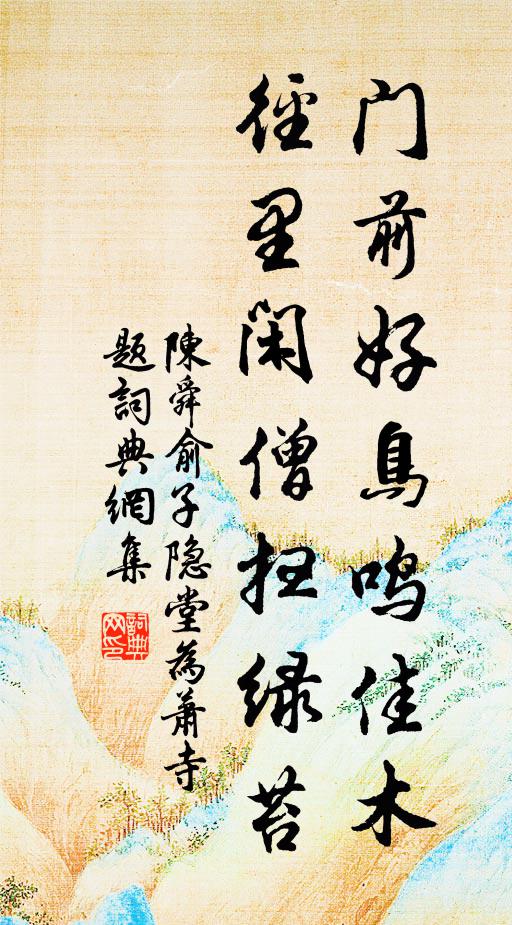 门前好鳥鸣佳木
徑里闲僧扫绿苔
陳舜俞子隐堂為蕭寺
题詞典網集
詞典
网印